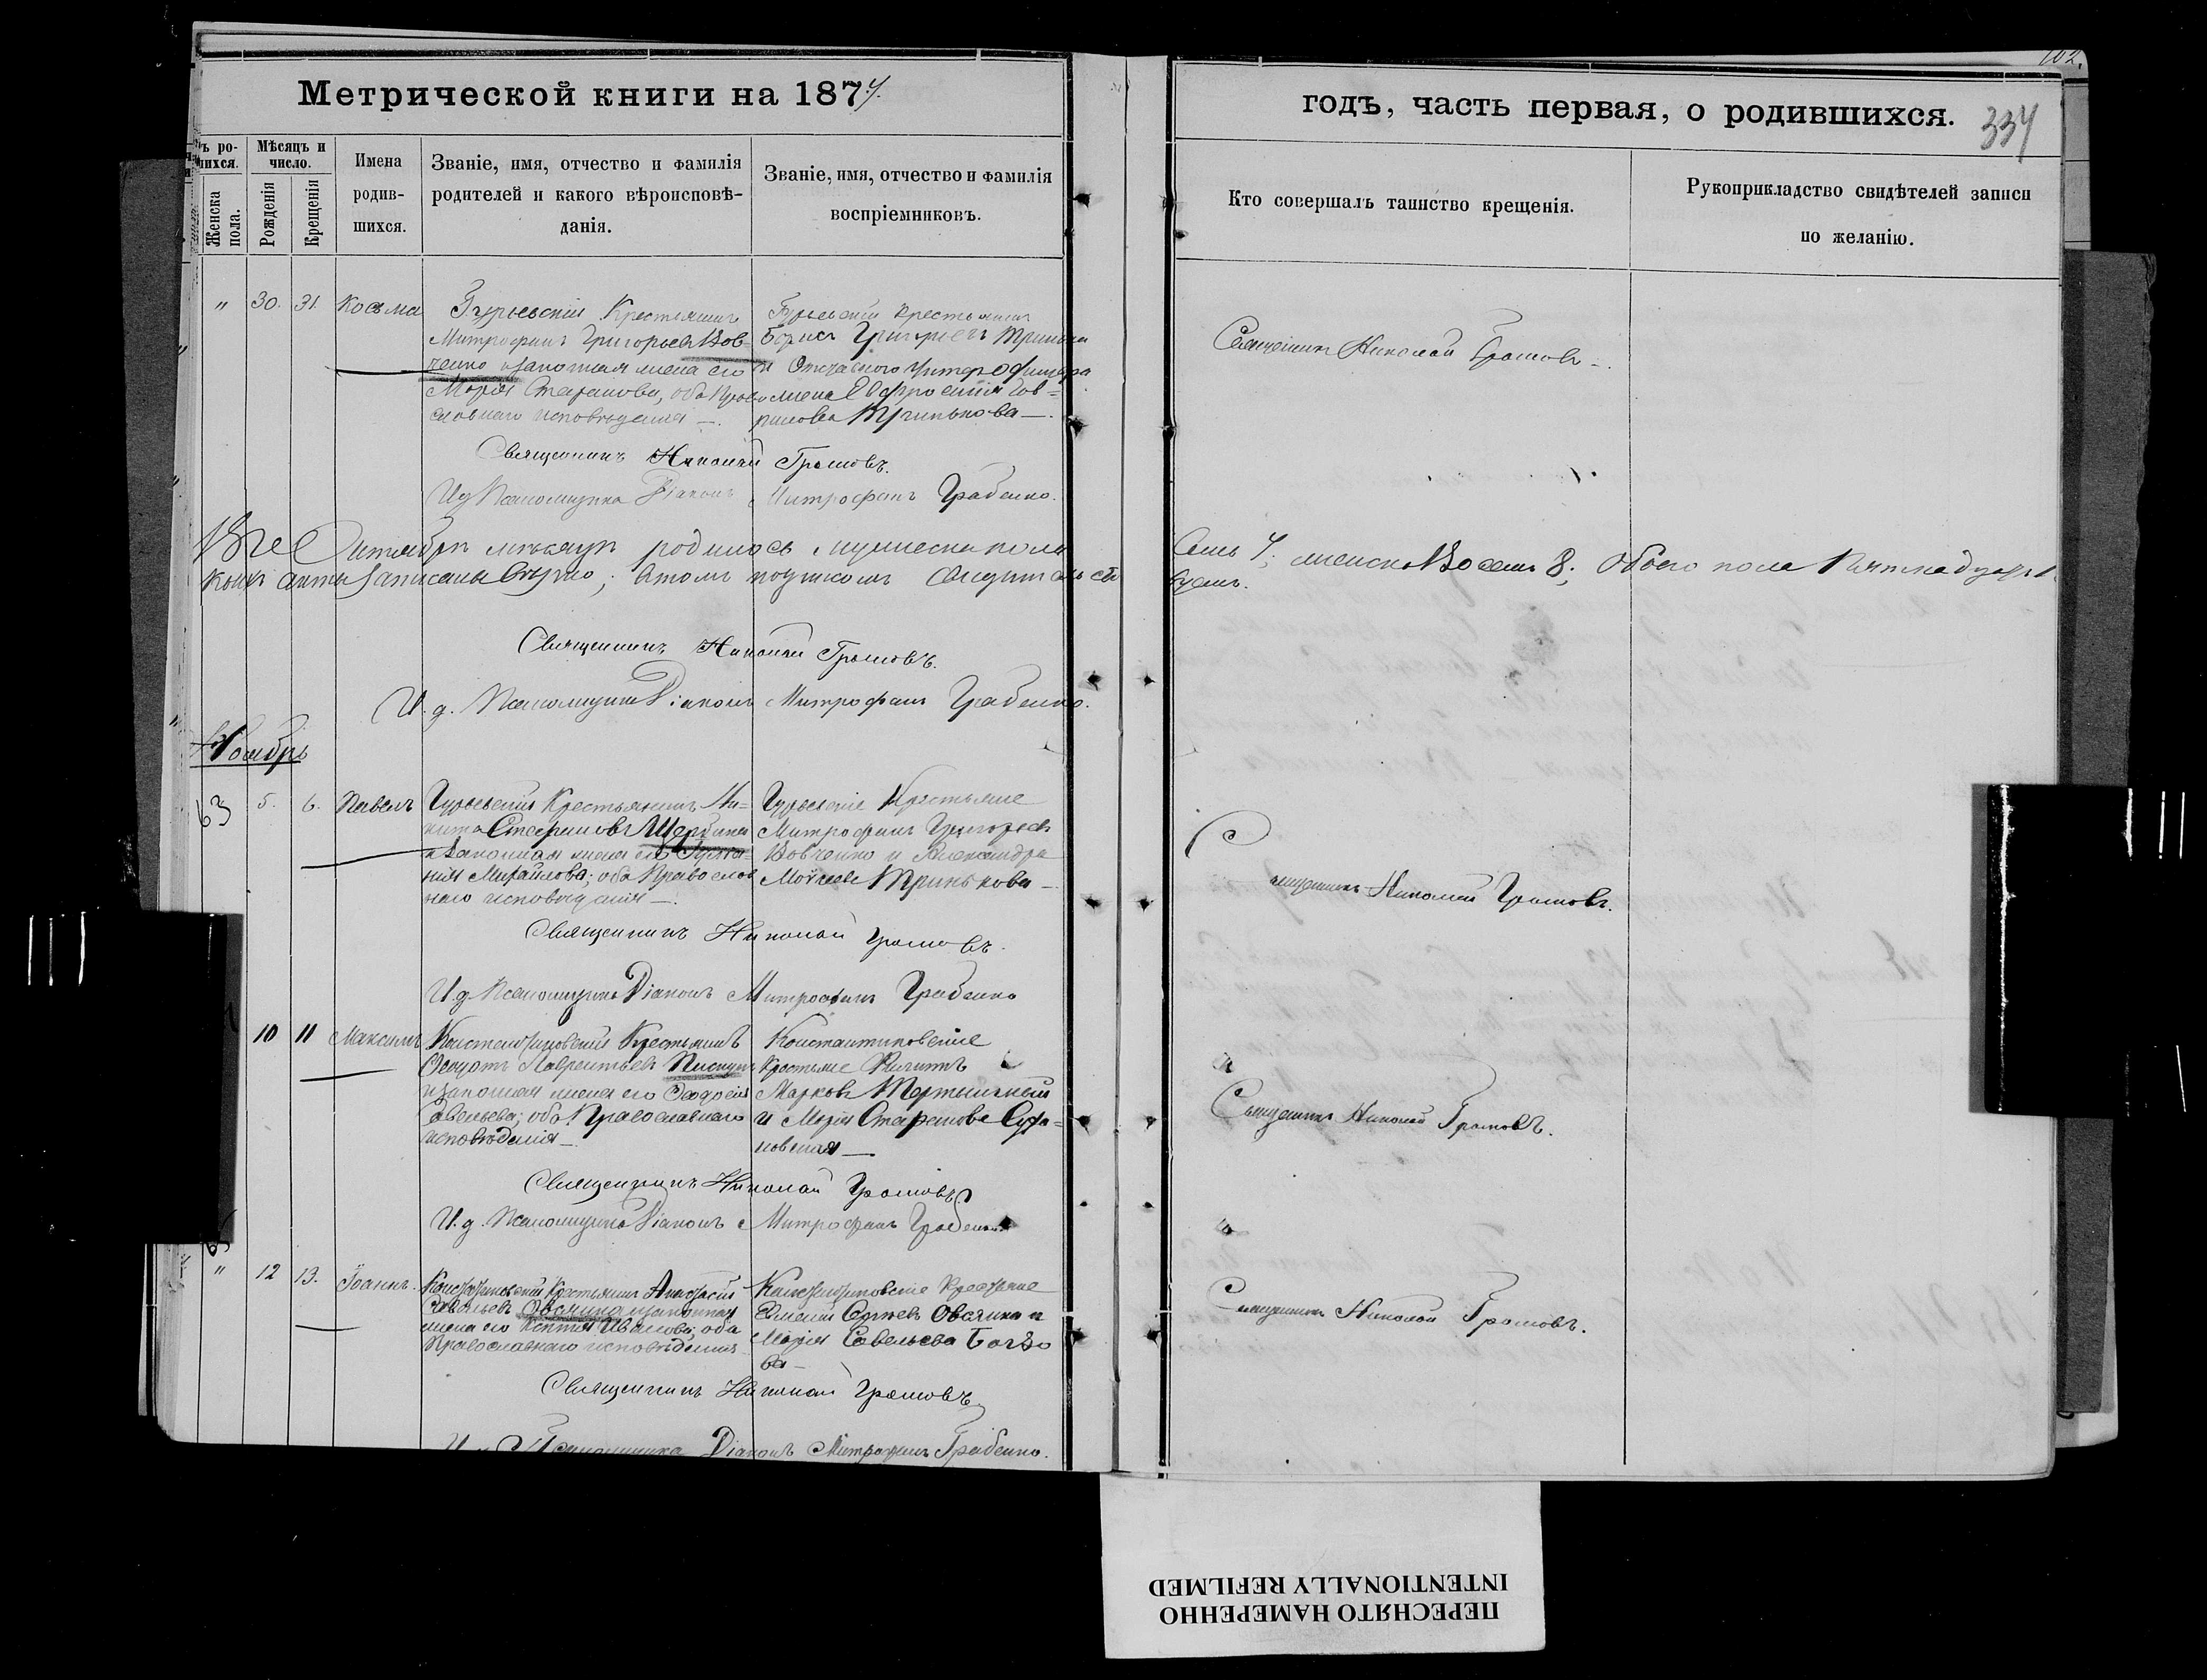 Метрической книги на 1877.
годъ, часть первая, о родившихся.
102.
334
ъ ро-
шихся.
Женска
пола.
Мѣсяцъ и
число.
Рожденія
Крещенія
Имена
родив-
шихся.
Званіе, имя, отчество и фамилія
родителей и какого вѣроисповѣ-
данія.
Званіе, имя, отчество и фамилія
воспріемниковъ.
Кто совершалъ таинство крещенія.
Рукоприкладство свидѣтелей записи
по желанію.
" 30. 31. Косма
Гурьевскій Крестьянинъ
Митрофанъ Григорьевъ Вов-
ченко и законная жена его
Марія Стефанова, оба Право
славнаго исповѣданія —.
Гурьевскій крестьянинъ
Борисъ Григорьевъ
и Отставного Унтерофицера
жена Евфросинія Гав-
рилова Тринькова —.
Священникъ Николай Громовъ.
Священникъ Николай Громовъ.
И д Псаломщика Діаконъ Митрофанъ Грабенко.
Октябрѣ мѣсяцѣ родилось мужеска пола
Семь 7; женска Восемь 8; Обоего пола Пятнадцать
акты записаны вѣрно; въ томъ подписомъ свидѣтельств
уемъ.
Священникъ Николай Громовъ.
И. д. Псаломщика Діаконъ Митрофанъ Грабенко.
Ноябрь
63 5. 6. Павелъ
Гурьевскій Крестьянинъ Ни-
кита Стефановъ Щербина
и законная жена его
нія Михайлова; оба Православ
наго исповѣданія —.
Гурьевскіе Крестьяне
Митрофанъ Григорьевъ
Вовченко и Александра
Тринькова —
Священникъ Николай Громовъ.
Священникъ Николай Громовъ.
И. д Псаломщика Діаконъ Митрофанъ Грабенко
10 11 Максимъ
Константиновскій Крестьянинъ
Лаврентьевъ Пискунъ
и законная жена его
Савельева; оба Православнаго
исповѣданія —
Константиновскіе
Крестьяне
Марковъ Тертышный
и Марія Стефанова Суха-
новская —
Священникъ Николай Громовъ.
Священникъ Николай Громовъ
И. д. Псаломщика Діаконъ Митрофанъ Грабенко
" 12 13. Іоаннъ.
Константиновскій Крестьянинъ
Савельевъ Овсяника и законная
жена его Иванова; оба
Православнаго исповѣданія
Константиновскіе Крестьяне
Овсяника и
Марія Савельева
ва —
Священникъ Николай Громовъ.
Священникъ Николай Громовъ
И д Псаломщика Діаконъ Митрофанъ Грабенко.
ПЕРЕСНЯТО НАМЕРЕННО
INTENTIONALLY REFILMED